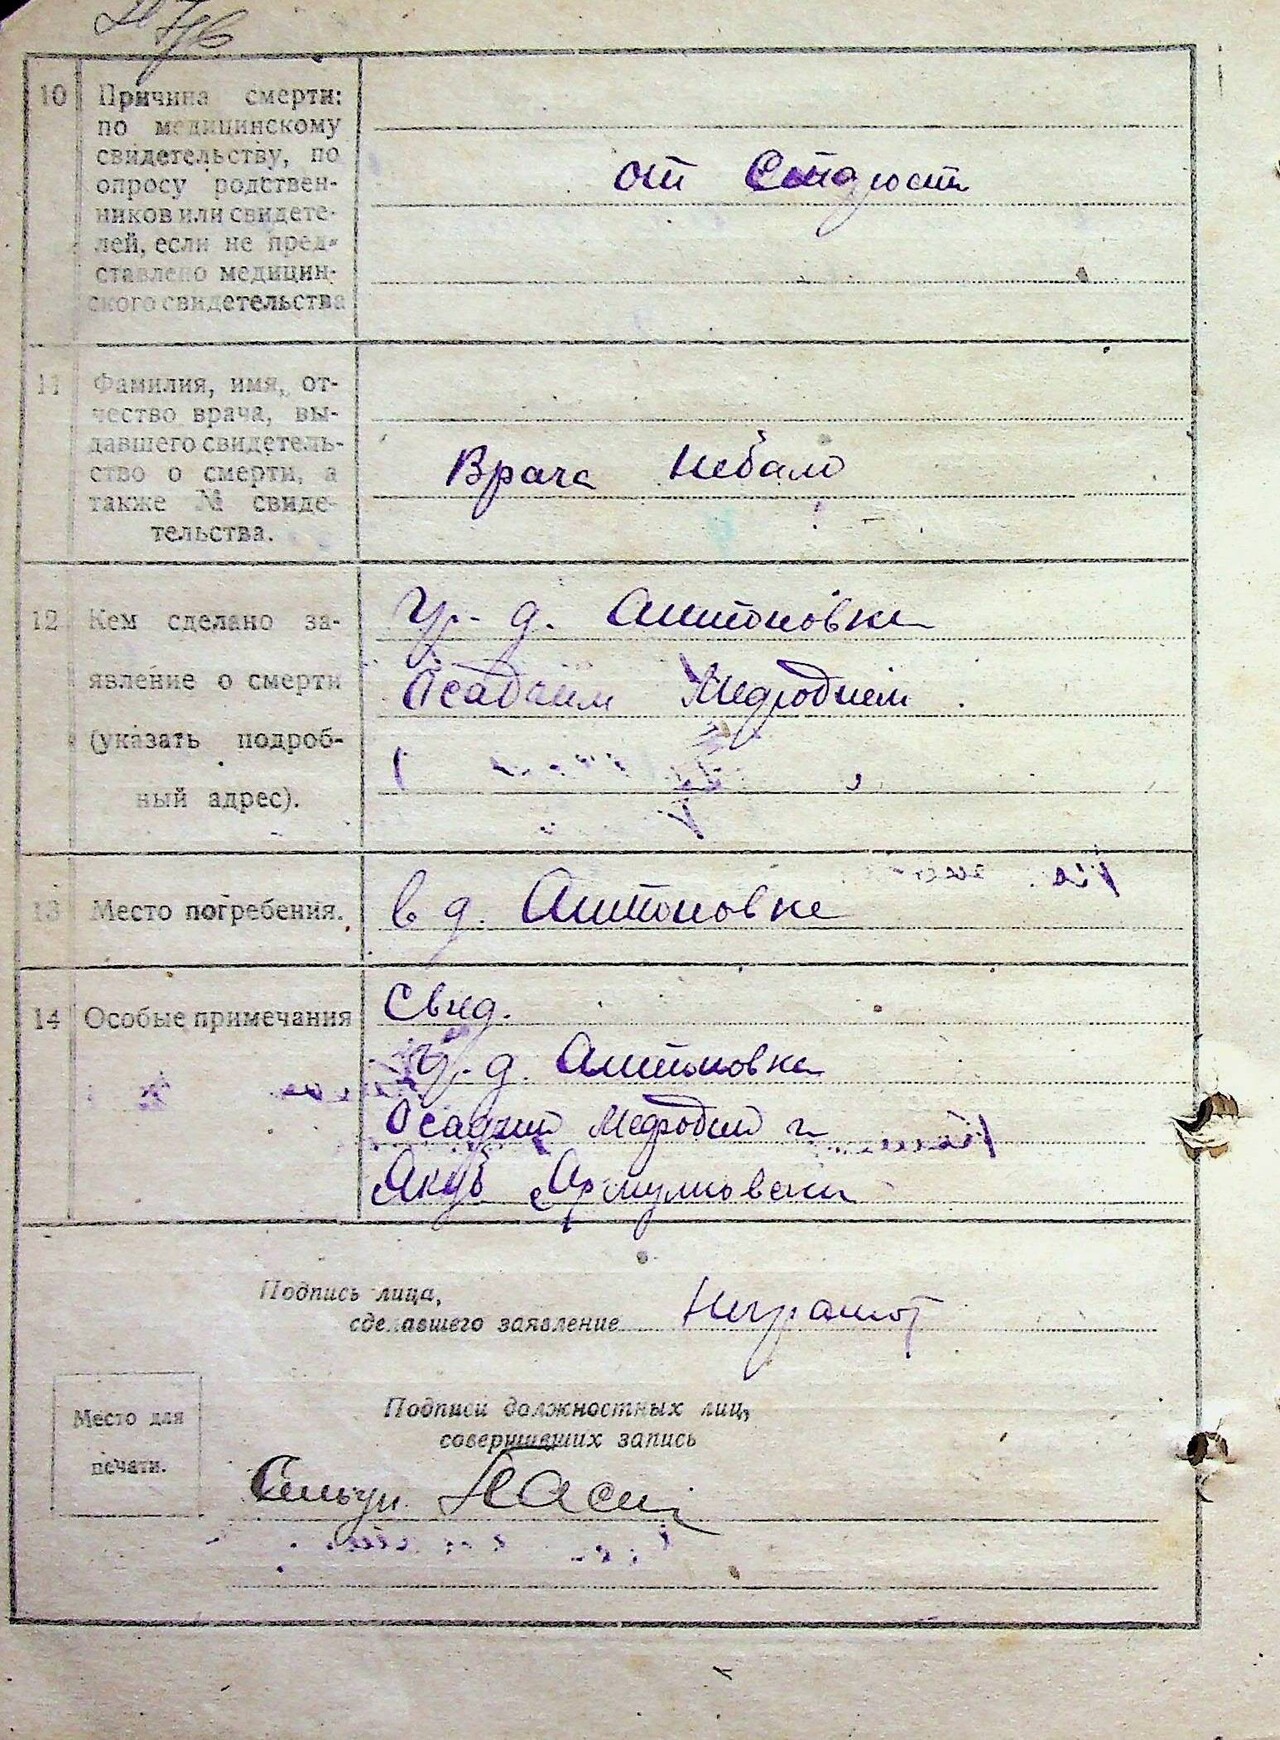 10 Причина смерти:
по медицинскому
свидетельству, по
опросу родствен-
ников или свидете-
лей, если не пред-
ставлено медицин-
ского свидетельства
от
11 Фамилия, имя, от-
чество врача, вы-
давшего свидетель-
ство о смерти, а
также № свиде-
тельства.
Врача небыло
12 Кем сделано за-
явление о смерти
(указать подроб-
ный адрес).
гр. д. Антоновка
13 Место погребения.
в д. Антоновке
14 Особые примечания
Свид.
гр. д. Антоновка
Якуб
Подпись лица,
сделавшего заявление
Неграмот
Подписи должностных лиц,
совершивших запись
Место для
печати.